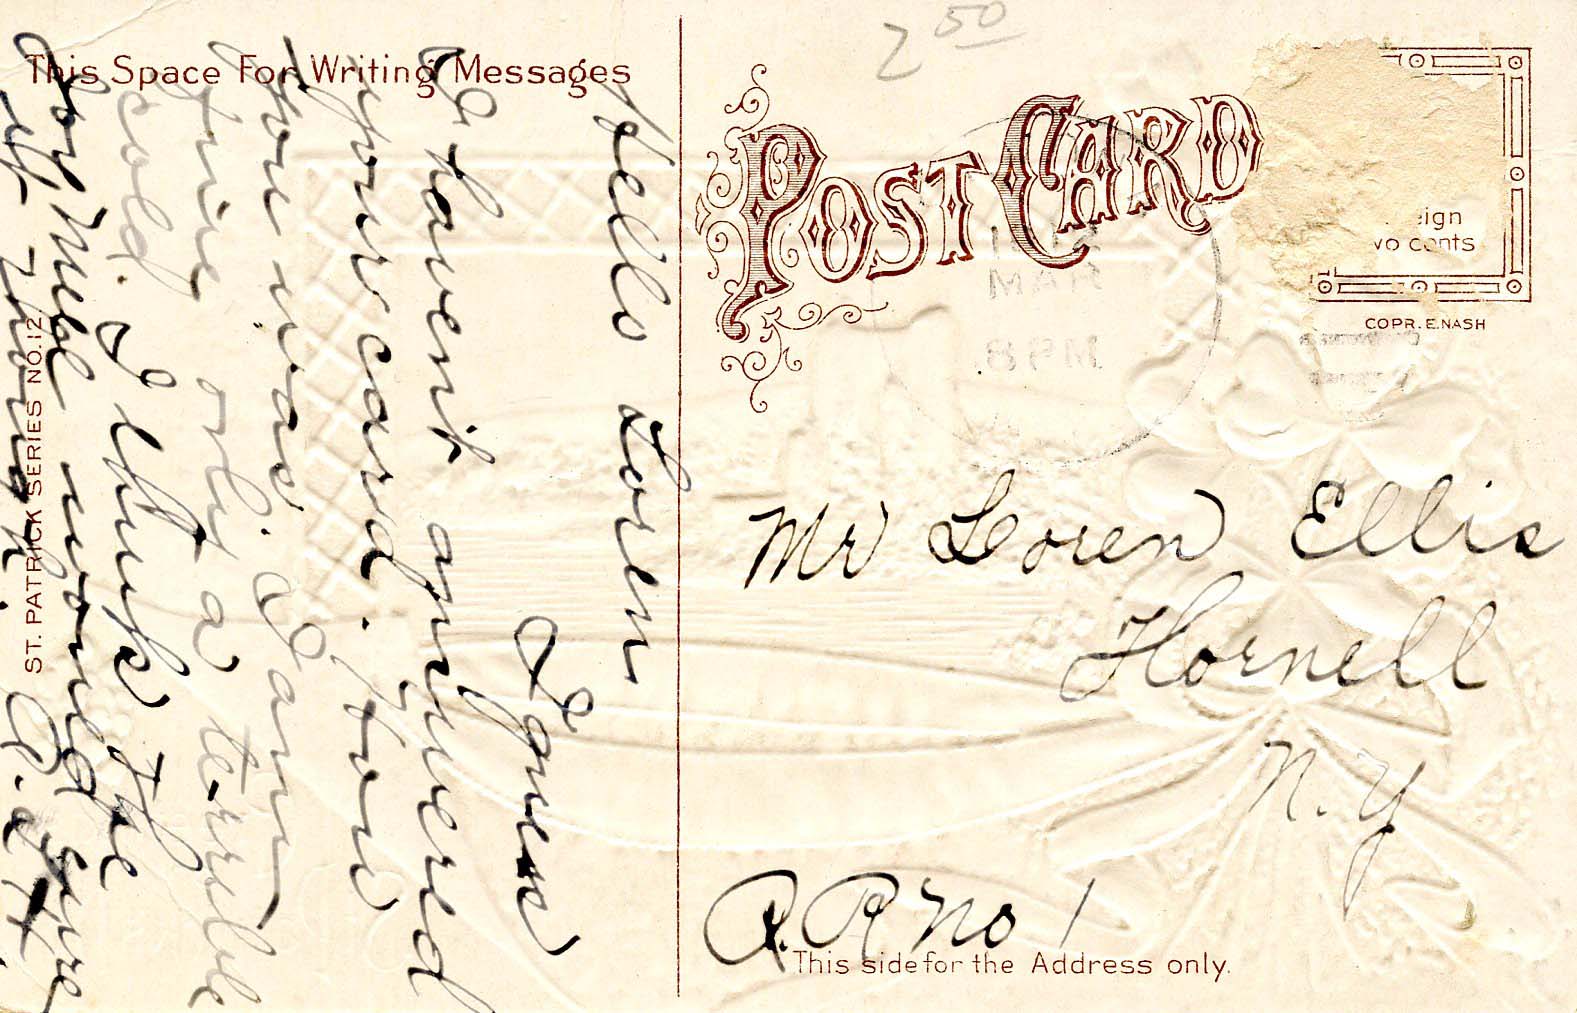 This Space For Writing Messages
Hello Loren
I guess
I havent answered
your card. How
you was. I am
fine only a terrible
cold. I think the
sure
ST. PATRICK SERIES NO. 12
2 50
POST CARD
eign
vo cents
COPR. E. NASH
MAR
8 PM
Mr Loren Ellis
Hornell
N. Y
R. R No 1
This side for the Address only.